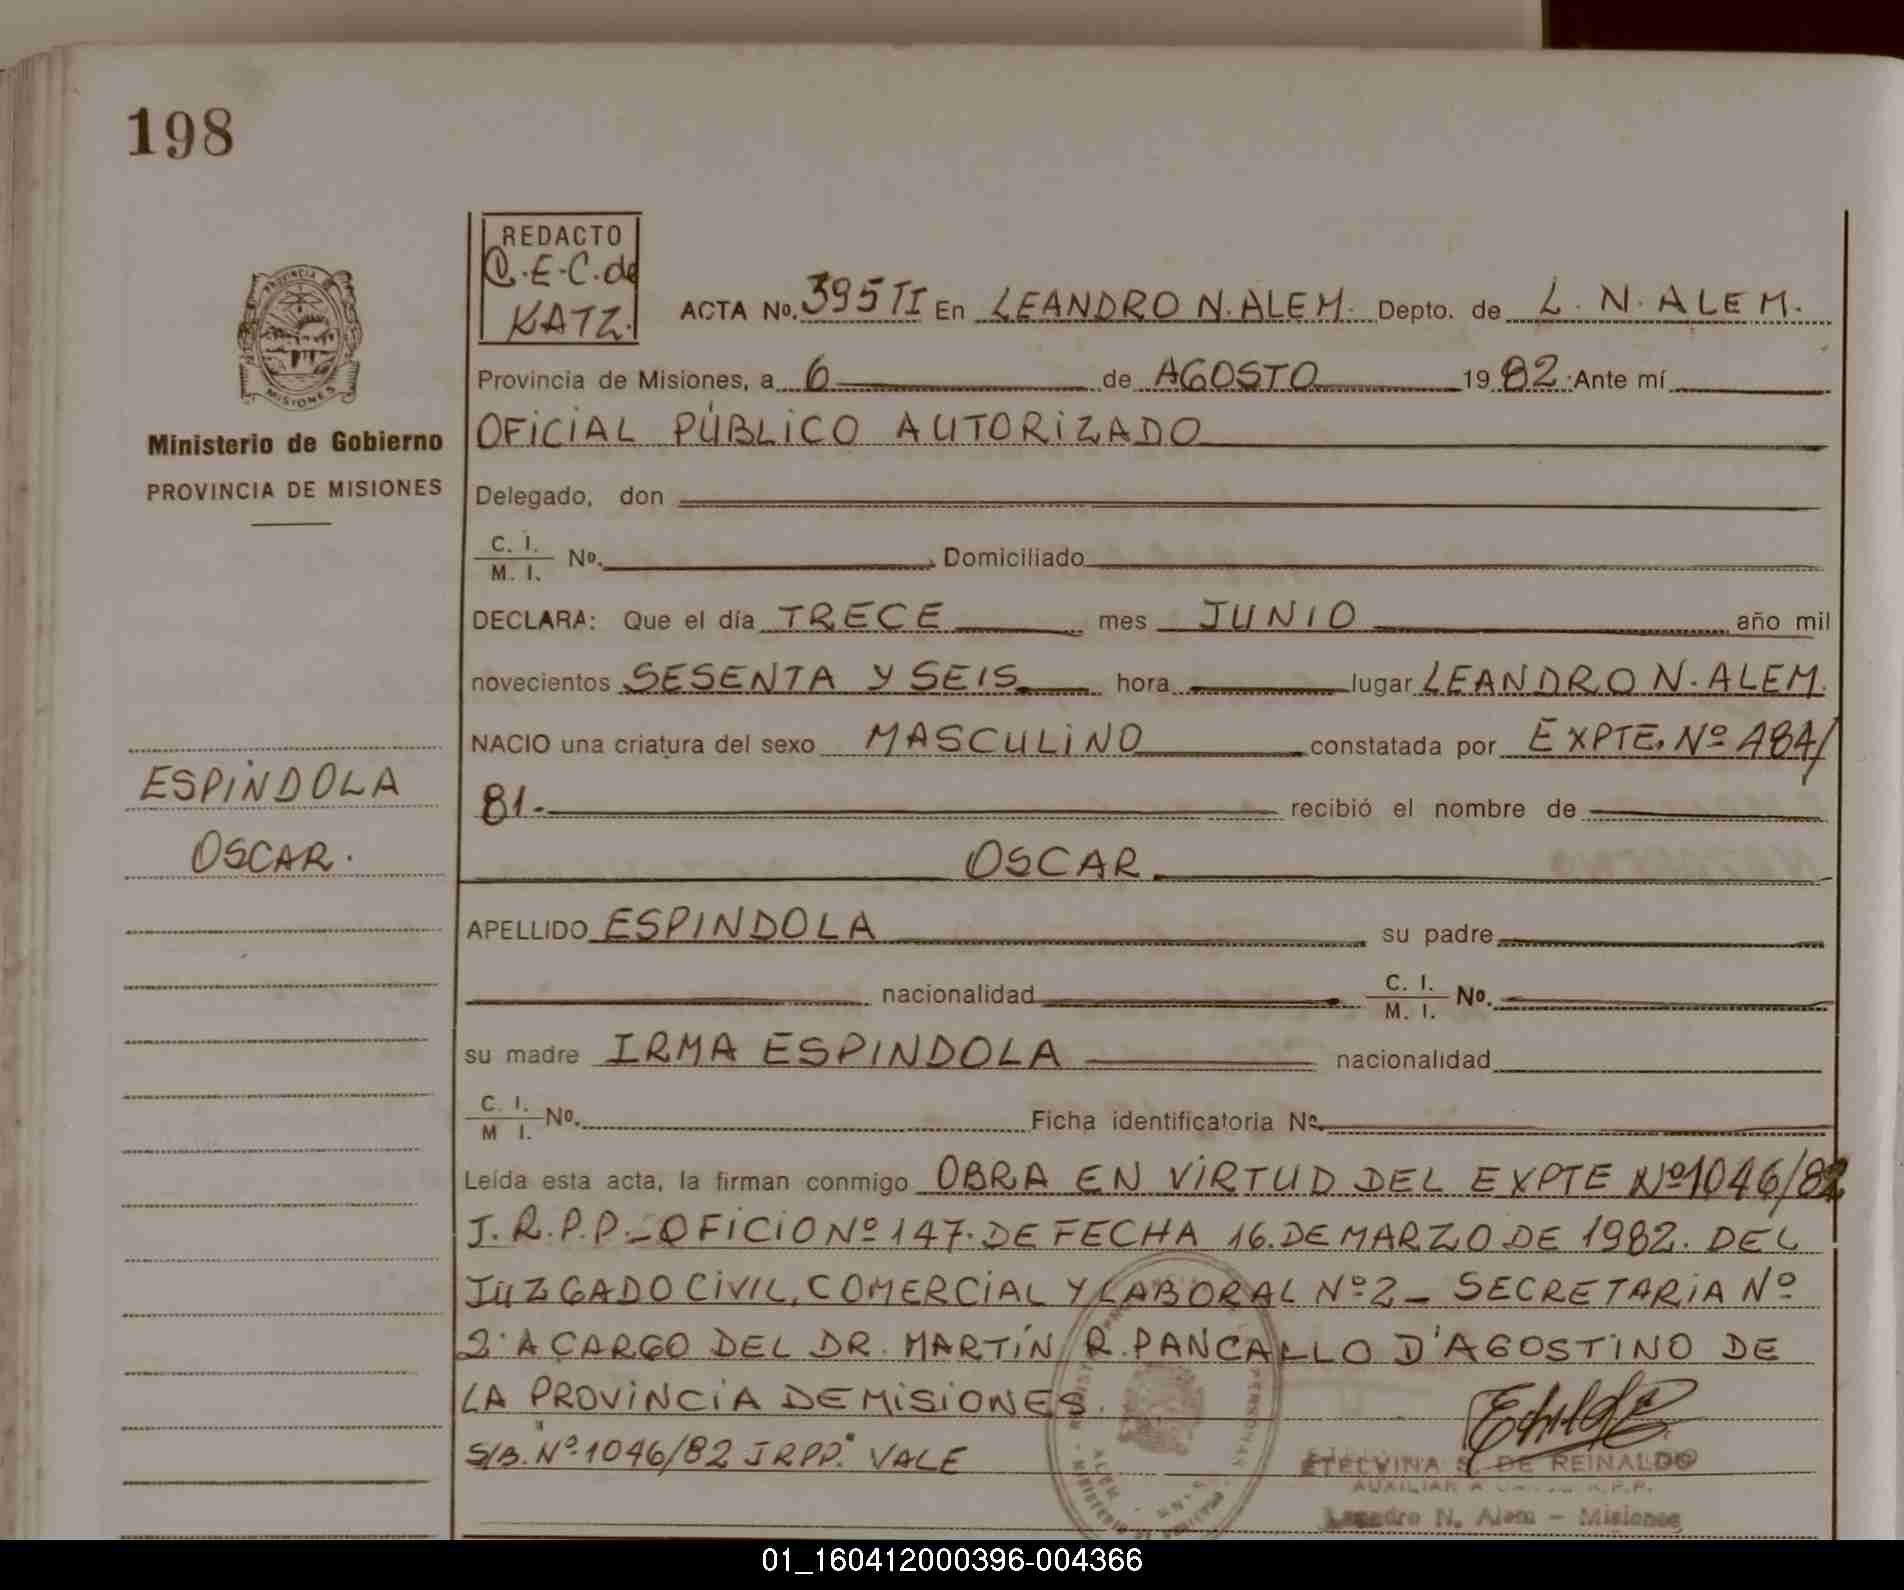 198
REDACTO
C.E.C. de
KATZ.
ACTA No. 395 TI En LEANDRO N. ALEM. Depto. de L. N. ALEM.
Provincia de Misiones, a 6 de AGOSTO 1982. Ante mí
OFICIAL PÚBLICO AUTORIZADO
PROVINCIA
MISIONES
Ministerio de Gobierno
PROVINCIA DE MISIONES
Delegado, don
C. I.
M. I. No. Domiciliado
DECLARA: Que el día TRECE mes JUNIO año mil
novecientos SESENTA Y SEIS hora lugar LEANDRO N. ALEM.
NACIO una criatura del sexo MASCULINO constatada por EXPTE. Nº 484/
81.- recibió el nombre de
ESPINDOLA
OSCAR.
OSCAR
APELLIDO ESPINDOLA su padre
nacionalidad C. I.
M. I. No.
su madre IRMA ESPINDOLA nacionalidad
C. I.
M I. No. Ficha identificatoria No.
Leída esta acta, la firman conmigo OBRA EN VIRTUD DEL EXPTE Nº 1046/82
J.R.P.P.- OFICIO Nº 147. DE FECHA 16. DE MARZO DE 1982. DEL
JUZGADO CIVIL, COMERCIAL Y LABORAL Nº 2 - SECRETARIA Nº
2. A CARGO DEL DR. MARTÍN R. PANCALLO D'AGOSTINO DE
LA PROVINCIA DE MISIONES.
S/B. "Nº 1046/82 JRPP." VALE
ETELVINA S. DE REINALDO
AUXILIAR A
Leandro N. Alem - Misiones
01_160412000396-004366